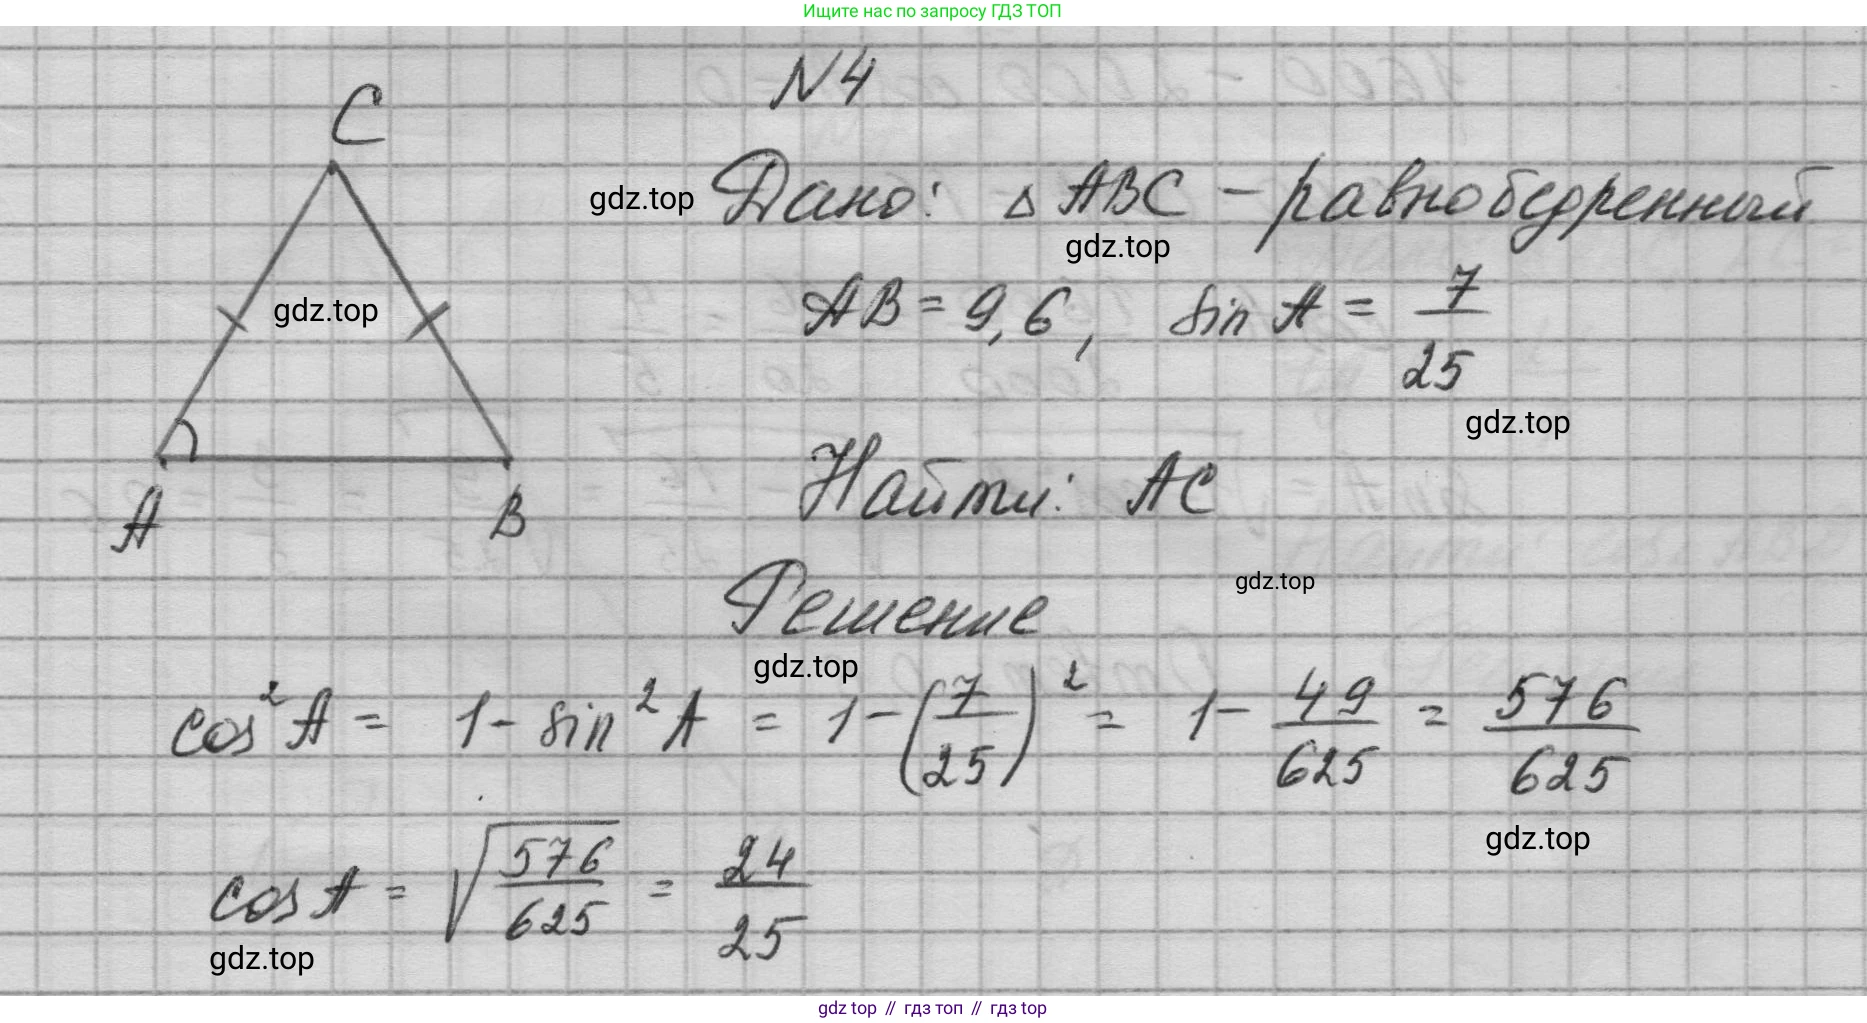 Ищите нас по запросу ГДЗ ТОП
N4
C
gdz.top Дано: △ ABC - равнобедренный
gdz.top
gdz.top
AB = 9,6, sin A = 7/25
gdz.top
Найти: AC
A B
Решение
gdz.top
gdz.top
cos²A = 1 - sin²A = 1 - (7/25)² = 1 - 49/625 = 576/625
gdz.top
cos A = √(576/625) = 24/25
gdz.top
gdz top // гдз топ // гдз top